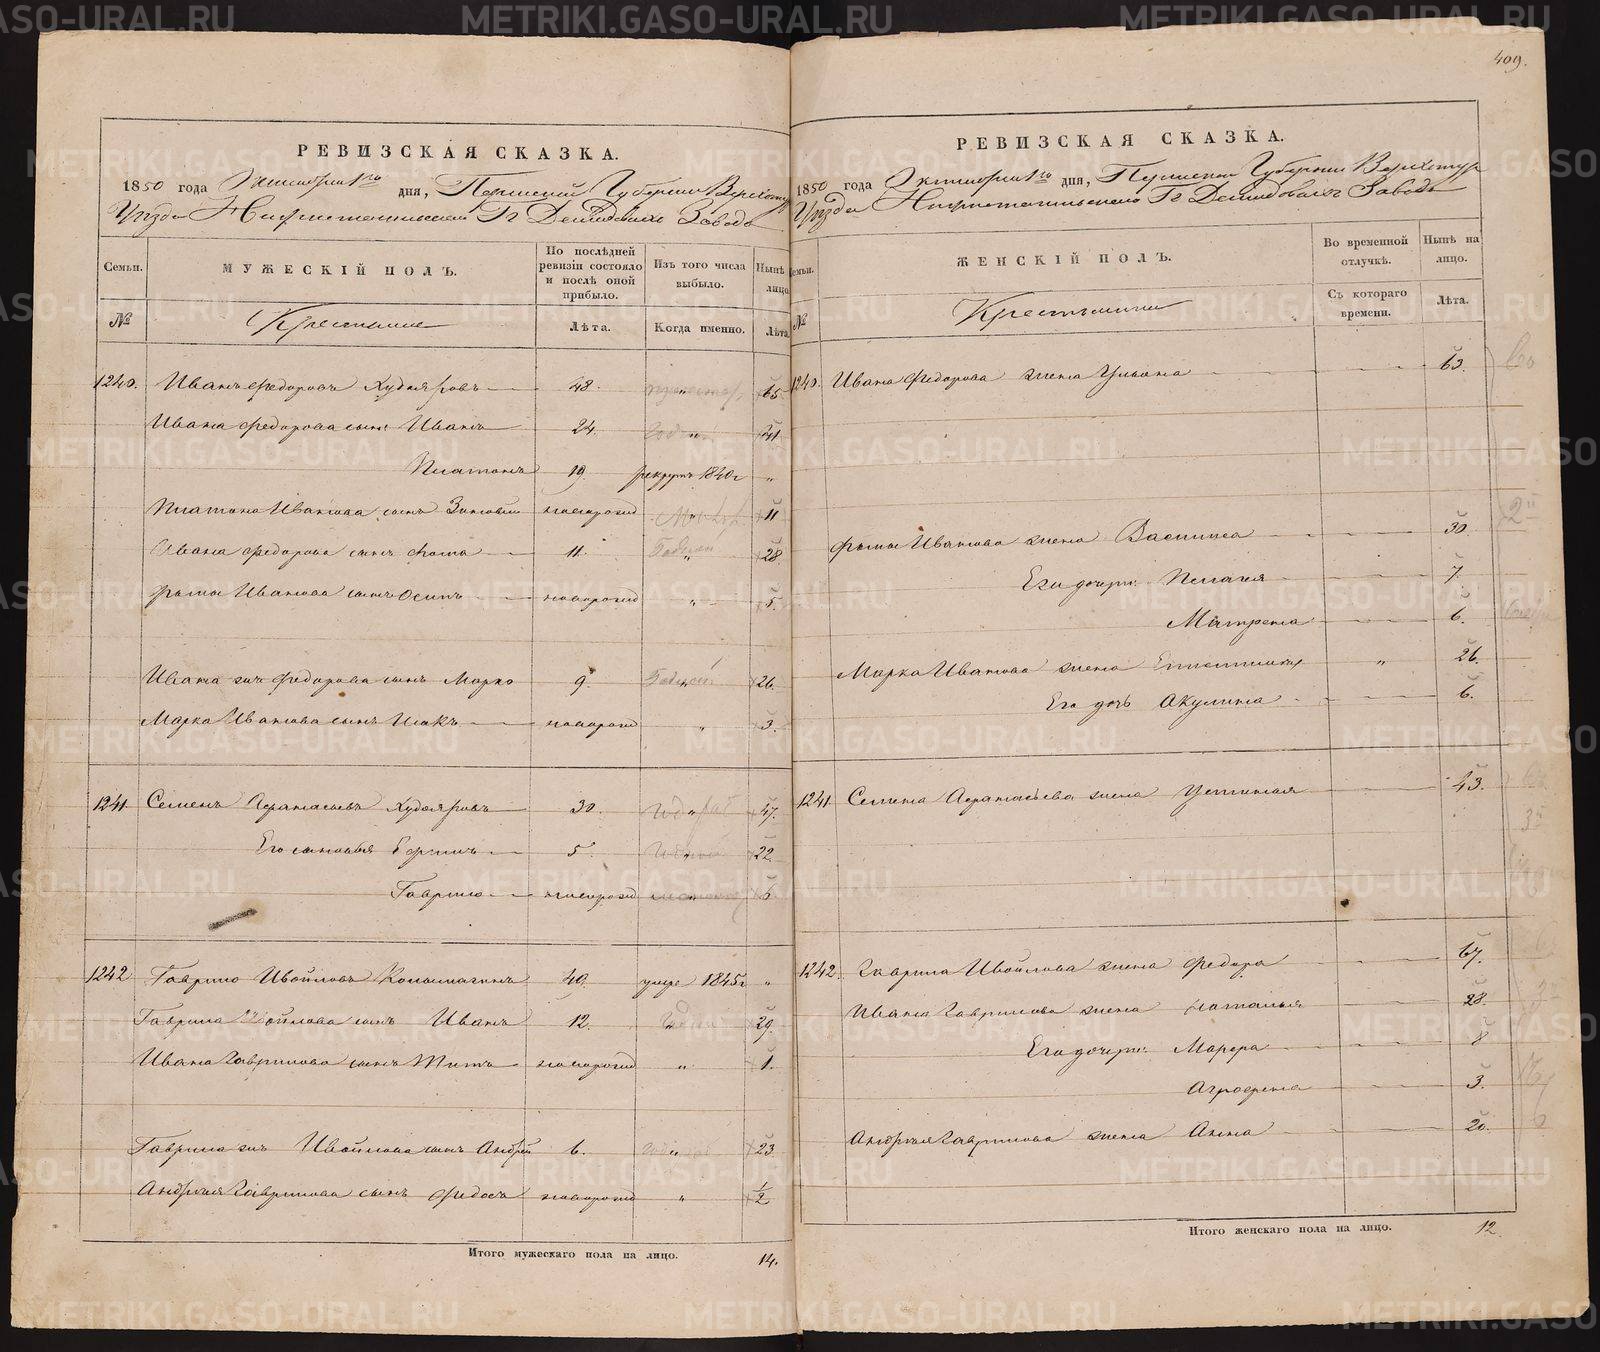 409.
РЕВИЗСКАЯ СКАЗКА.
1850 года Октября 1го дня, Пермской Губернии Верхотур
Уезда Нижнетагильскаго Гг Демидовыхъ Завода
Семьи. МУЖЕСКІЙ ПОЛЪ. По послѣдней ревизіи состояло и послѣ оной прибыло. Изъ того числа выбыло. Нынѣ на лицо.
№ Крестьяне Лѣта. Когда именно. Лѣта.
1240. Иванъ Федоровъ Худояровъ 48. " 65.
Ивана Федорова сынъ Иванъ 24. " 41.
Платонъ 19. рекрутъ 1840г "
Платона Иванова сынъ Зиновий новорожд " 11
Ивана Федорова сынъ Фома 11. " 28.
Фомы Иванова сынъ Осипъ новорожд " 5.
Ивана же Федорова сынъ Марко 9. " 26.
Марка Иванова сынъ Исакъ новорожд " 3.
1241. Семенъ Афанасьевъ Худояровъ 30. " 47.
Его сыновья Ефимъ 5. " 22.
Гаврило новорожд " 6.
1242 Гаврило Ивойловъ 49. умре 1845г "
Гаврила Ивойлова сынъ Иванъ 12. " 29.
Ивана Гаврилова сынъ Титъ новорожд " 1.
Гаврила же Ивойлова сынъ Андрей 6. " 23.
Андрея Гаврилова сынъ Федосъ новорожд " 1/2
Итого мужескаго пола на лицо. 14.
РЕВИЗСКАЯ СКАЗКА.
1850 года Октября 1го дня, Пермской Губернии Верхотур
Уезда Нижнетагильскаго Гг Демидовыхъ Завода
Семьи. ЖЕНСКІЙ ПОЛЪ. Во временной отлучкѣ. Нынѣ на лицо.
№ Крестьянки Съ котораго времени. Лѣта.
1240. Ивана Федорова жена Ульяна 63.
Фомы Иванова жена Василиса 30.
Его дочери: Пелагея 7.
Матрена 6.
Марка Иванова жена " 26.
Его дочь Акулина 6.
1241 Семена Афанасьева жена Устинья 43.
1242. Гаврила Ивойлова жена Федора 67.
Ивана Гаврилова жена Наталья 28.
Его дочери: Марфа 8
Аграфена 3.
Андрея Гаврилова жена Анна 20.
Итого женскаго пола на лицо. 12.
METRIKI.GASO-URAL.RU